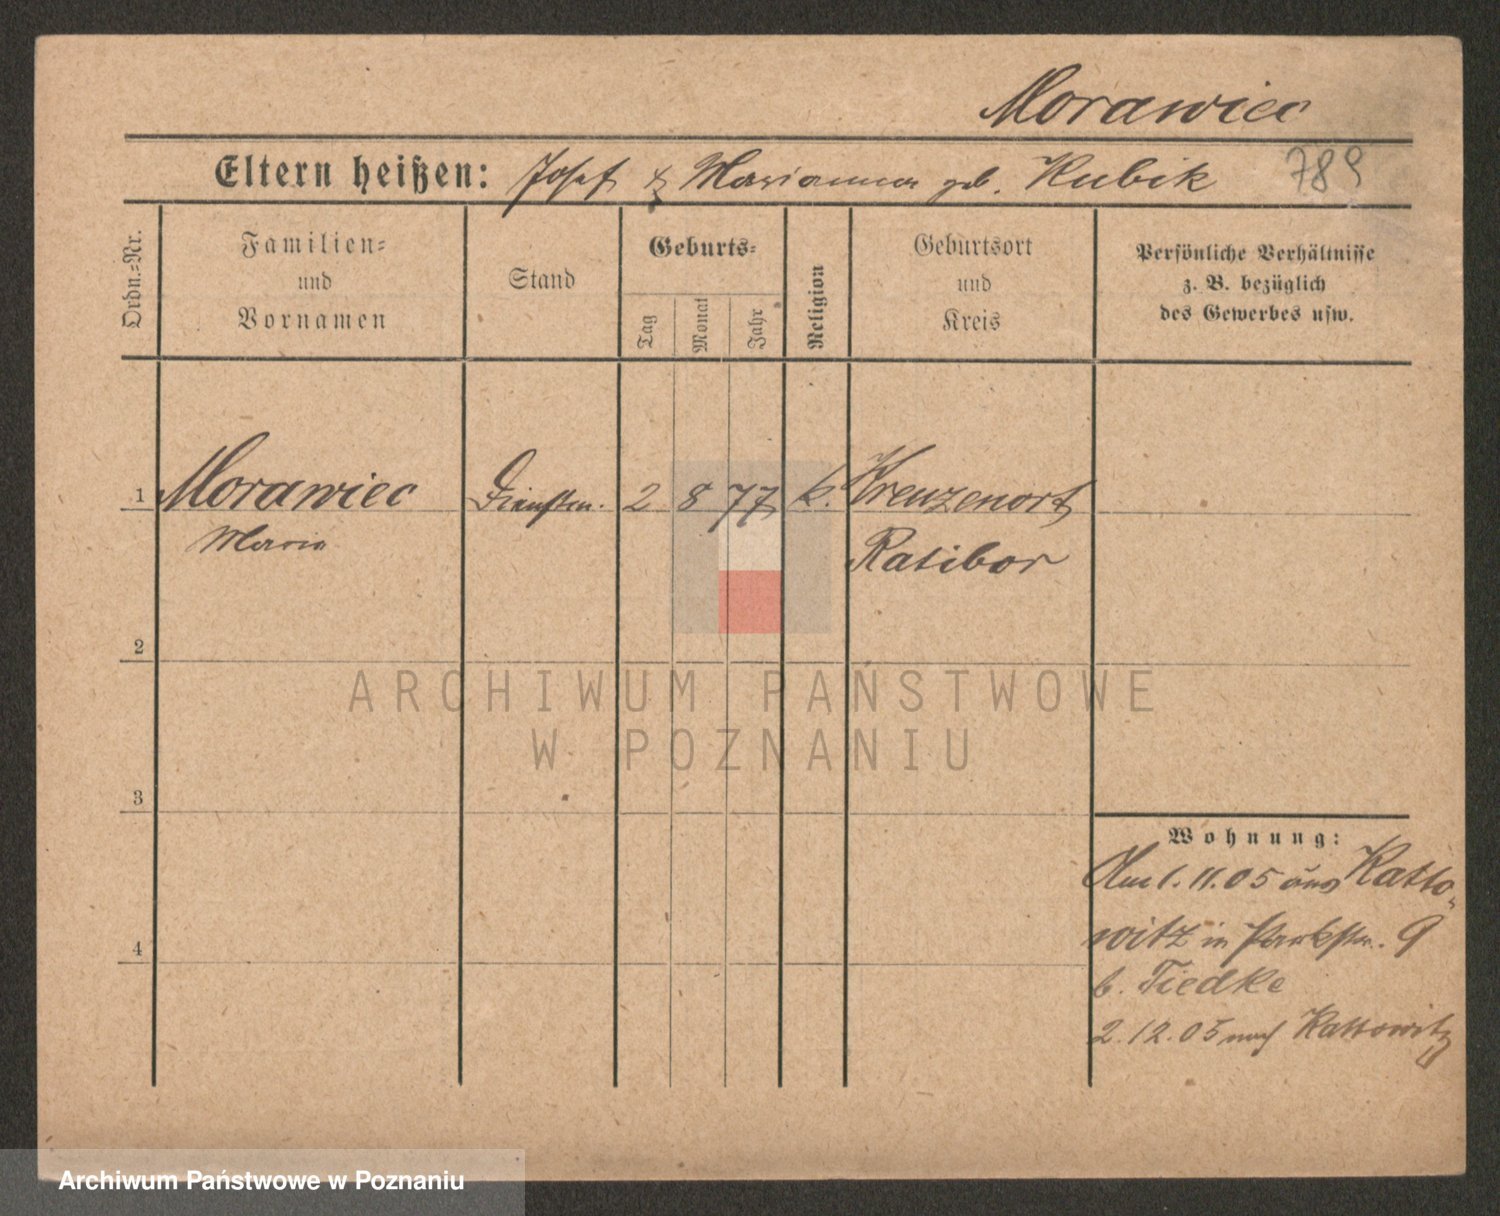 Morawiec
Eltern heißen: Josef & Marianna geb. Kubik 789
Ordn.=Nr.
Familien=
und
Vornamen
Stand
Geburts=
Tag
Monat
Jahr
Religion
Geburtsort
und
Kreis
Persönliche Verhältnisse
z. B. bezüglich
des Gewerbes usw.
1 Morawiec Dienstm. 2 8 77 k. Kreuzenort
Maria Ratibor
2
ARCHIWUM PAŃSTWOWE
W POZNANIU
3
Wohnung:
Am 1. 11. 05 aus Katto-
witz in Parkstr. 9
b. Tiedke
2. 12. 05 nach Kattowitz
4
Archiwum Państwowe w Poznaniu